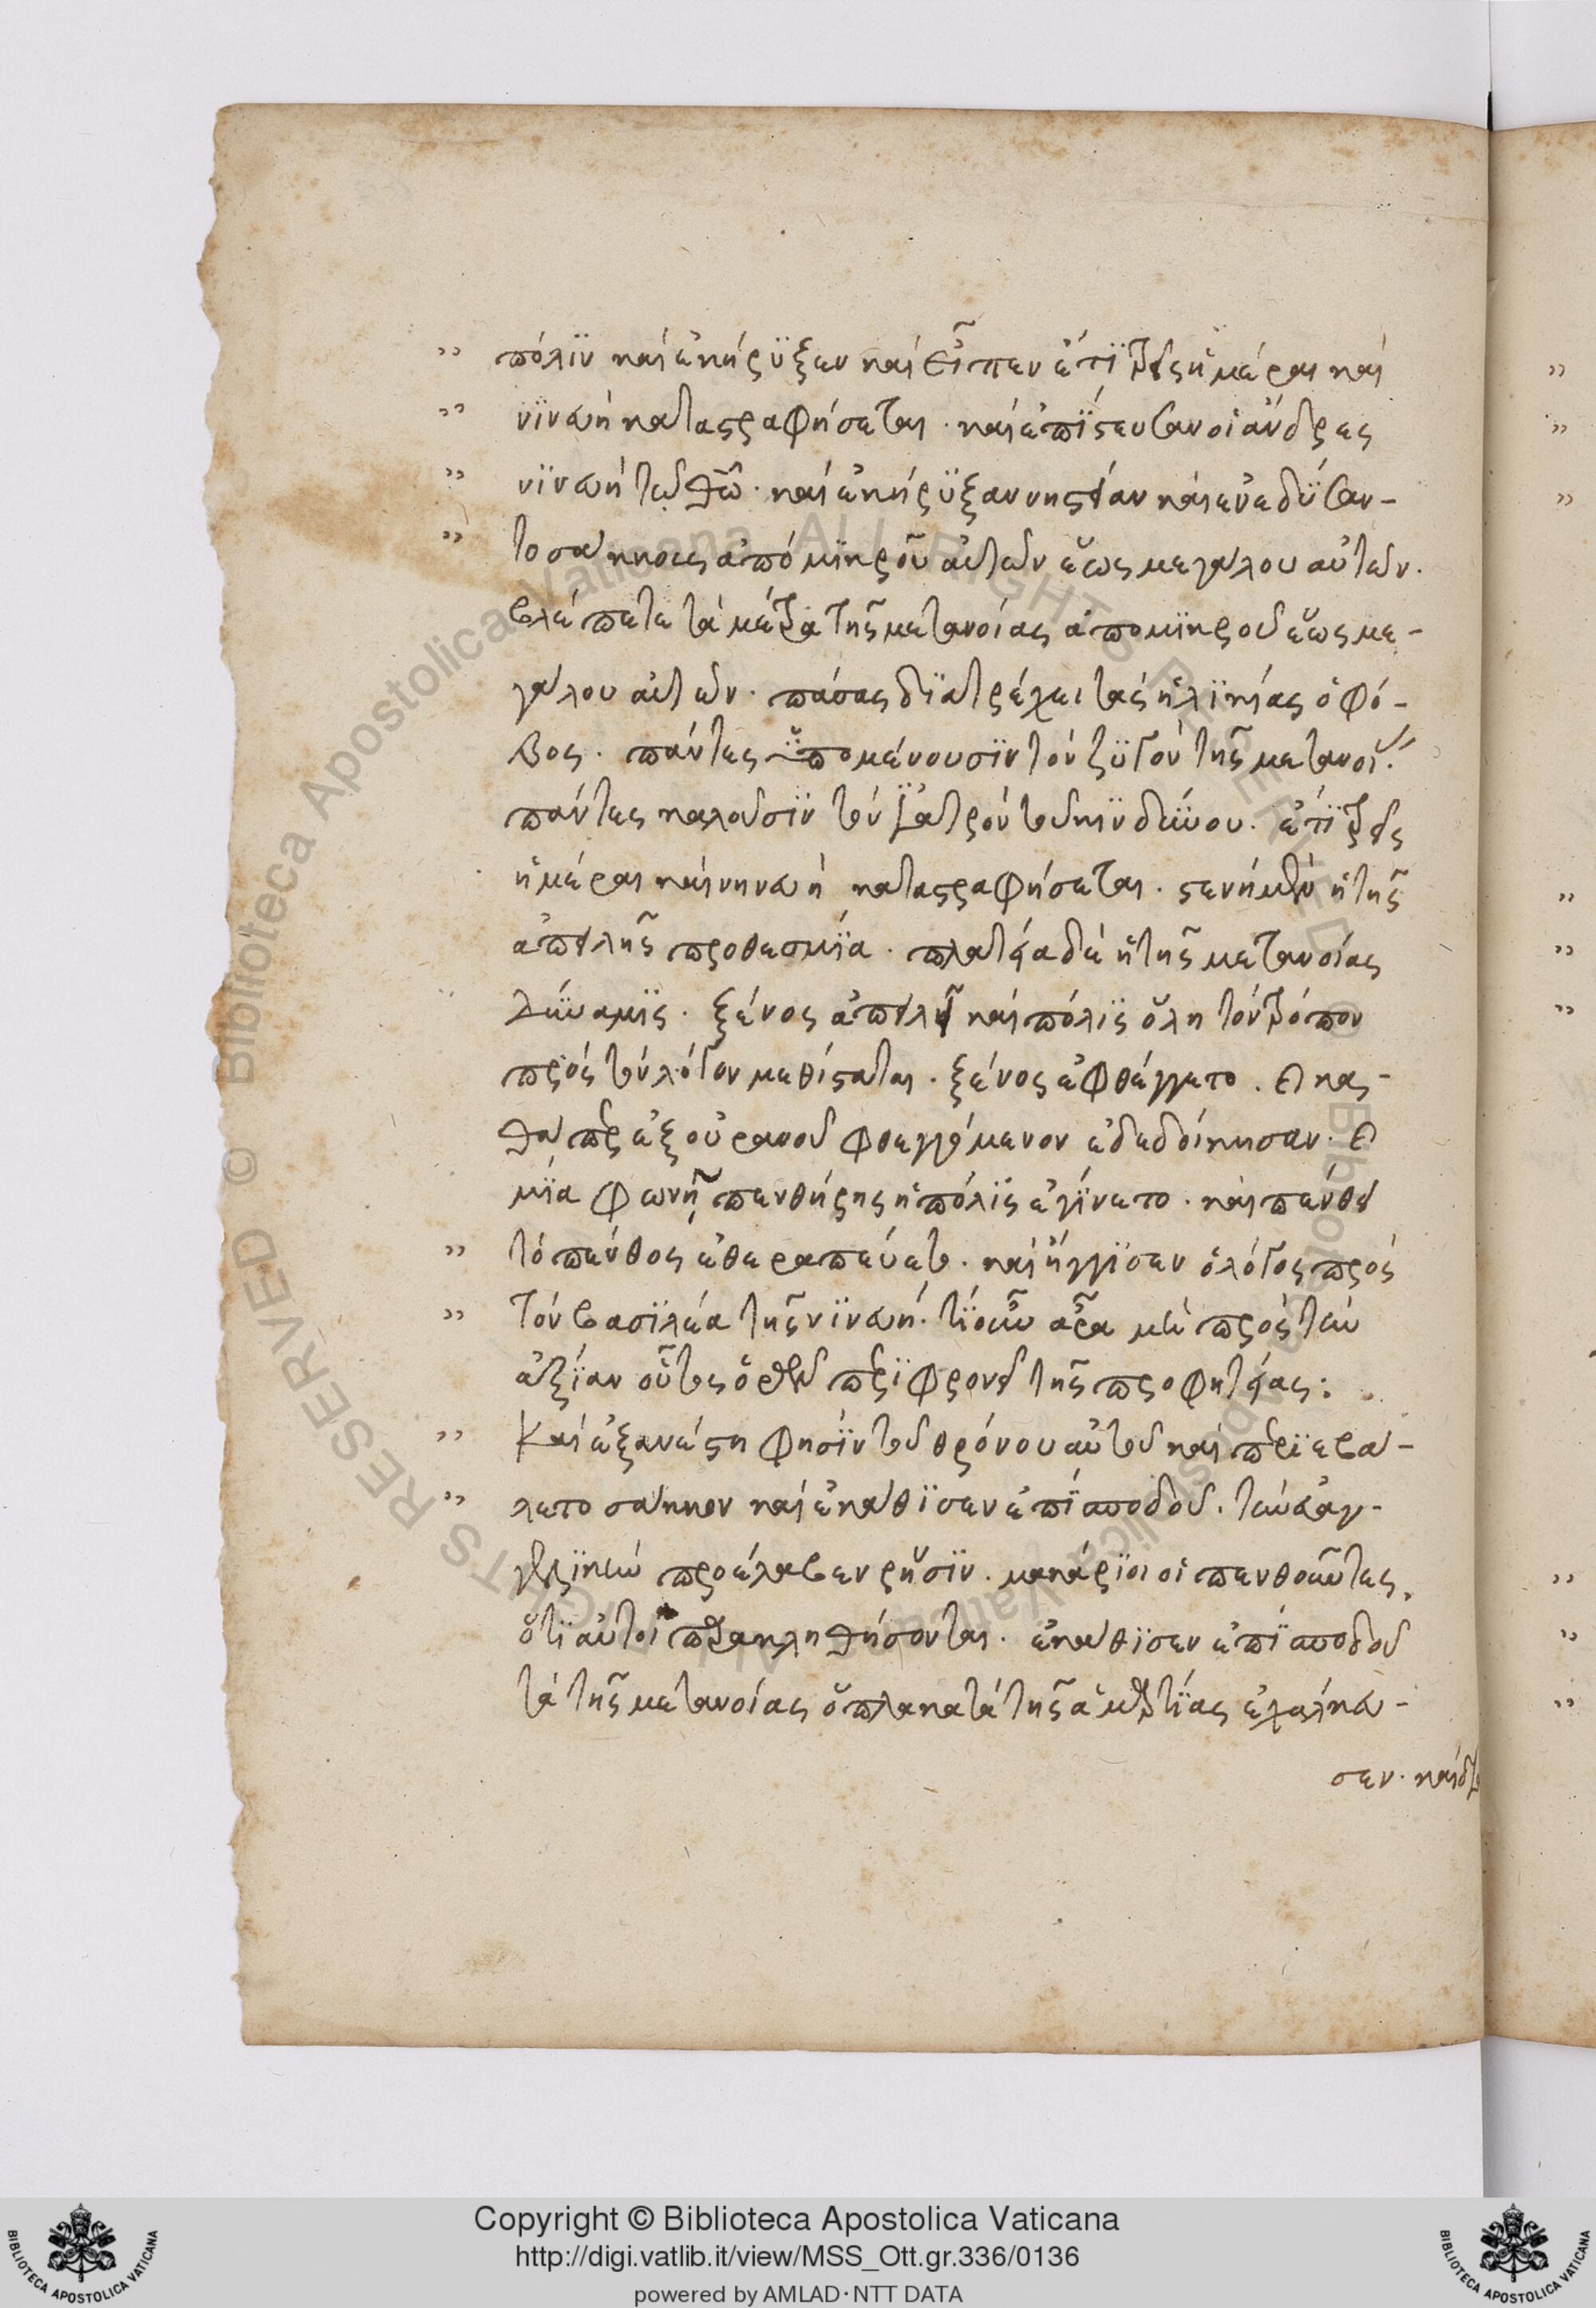 πόλϊν καὶ ἐκήρϋξεν καὶ εἶπεν ἔτϊ τρεῖς ἡμέραι καὶ
νϊνευὴ καταστραφήσεται · καὶ ἐπίστευσαν οἱ ἄνδρες
νϊνευὴ τῷ θῶ · καὶ ἐκήρϋξαν νηστείαν καὶ ἐνεδύσαν-
το σάκκους ἀπὸ μϊκροῦ αὐτῶν ἕως μεγάλου αὐτῶν ·
βλέπετε τὰ μέτρα τῆς μετανοίας ἀπο μϊκροῦ ἕως με-
γάλου αὐτῶν · πάσας δϊατρέχει τὰς ἡλϊκίας ὁ φό-
βος · πάντες ὑπομένουσϊν τὸν ζϋγὸν τῆς μετανοί
πάντες καλοῦσϊν τὸν ἰατρὸν τοῦ κϊνδύνου · ἔτϊ τρεῖς
ἡμέραι καὶ νηνευὴ καταστραφήσεται · στενὴ μὲν ἡ τῆς
ἀπειλῆς προθεσμία · πλατεία δὲ ἡ τῆς μετανοίας
δύναμϊς · ξένος ἀπειλεῖ καὶ πόλϊς ὅλη τὸν τρόπον
πρὸς τὸν λόγον μεθίσταται · ξένος ἐφθέγγετο · καὶ κα-
θάπερ ἐξ οὐρανοῦ φθεγγόμενον ἐδεδοίκησαν · καὶ
μϊᾶ φωνῇ πενθήρης ἡ πόλϊς ἐγίνετο · καὶ πένθει
τὸ πένθος ἐθεραπεύετο · καὶ ἤγγϊσεν ὁ λόγος πρὸς
τὸν βασϊλέα τῆς νϊνευή · τί οὖν ἆρα μὴ πρὸς τὴν
ἀξίαν οὗτος ὁρῶν περϊφρονεῖ τῆς προφητείας :
Καὶ ἐξανέστη φησὶν τοῦ θρόνου αὐτοῦ καὶ περϊεβά-
λετο σάκκον καὶ ἐκάθϊσεν ἐπὶ σποδοῦ · τὴν εὐαγ-
γελϊκὴν προέλαβεν ρῆσϊν · μακάρϊοι οἱ πενθοῦντες,
ὅτϊ αὐτοὶ παρακληθήσονται · ἐκάθϊσεν ἐπὶ σποδοῦ
τὰ τῆς μετανοίας ὅπλα κατὰ τῆς ἁμαρτίας ἐχαλκευ-
σεν · καὶ
Copyright © Biblioteca Apostolica Vaticana
http://digi.vatlib.it/view/MSS_Ott.gr.336/0136
powered by AMLAD·NTT DATA